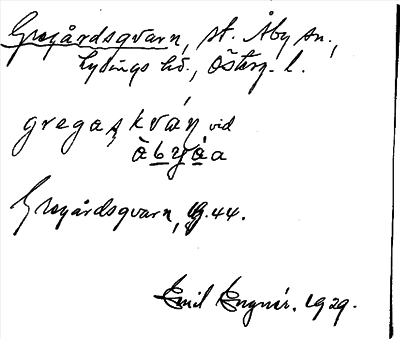 Gregårdsqvarn, st. Åby sn.,
Lysings hd., Österg. l.
gregaṣkván vid
åbyåa
Gregårdsqvarn, Gg. 44.
Emil Engnér. 1929.